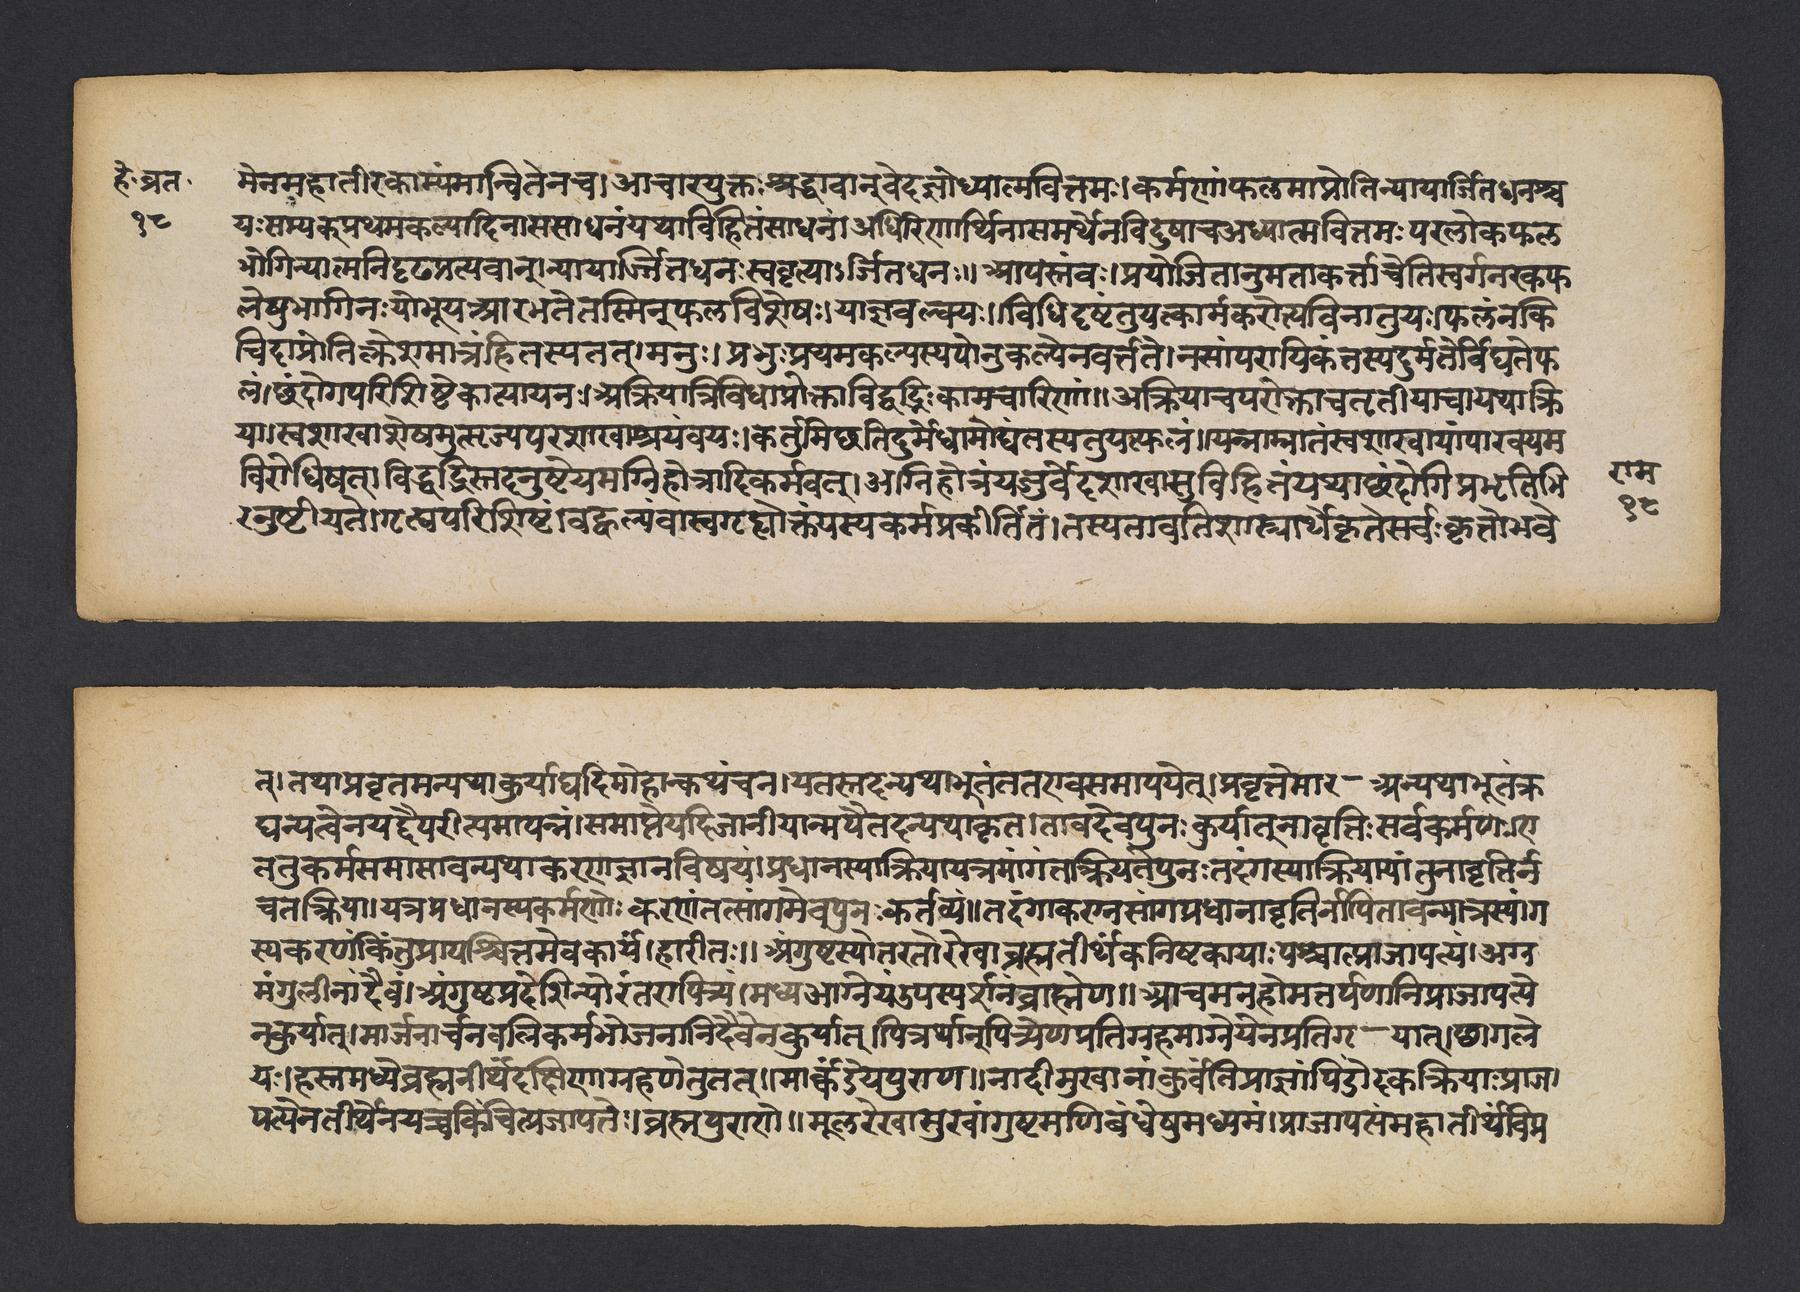 हे.व्रत.
१८
मेनमहातीरकाम्यंमान्वितेनच।आचारयुक्तःश्रद्धावान्वेदज्ञोध्यात्मवित्तमः।कर्मणांफलमाप्नोतिन्यायार्जितधनश्च
यःसम्यक्प्रथमकल्पादिनाससाधनंयथाविहितंसाधनं।अधिरिणार्थिनासमर्थेनविदुषाचअध्यात्मवित्तमःपरलोकफल
भोगिन्यात्मनिदृढप्रत्यवान्।न्यायार्ज्जितधनःस्ववृत्याऽर्जितधनः॥आपस्तंवः।प्रयोजितानुमताकर्त्ताचेतिस्वर्गनरकफ
लेषुभागिनःयोभूयआरभतेतस्मिन्फलविशेषः।याज्ञवल्क्यः॥विधिदृष्टंतुयत्कार्मकरोत्यविनातुयः।फलंनकिं
चिदाप्नोतिक्लेशमात्रंहितस्यतत्।मनुः।प्रभुःप्रथमकल्पस्ययोनुकल्पेनवर्त्तते।नसांपरायिकंतस्यदुर्मतेर्विद्यतेफ
लं।छंदोगपरिशिष्टेकात्यायनः।अक्रियात्रिविधाप्रोक्ताविद्वद्भिःकामचारिणां॥अक्रियाचपरोक्ताचतृतीयाचायथाक्रि
या।स्वशाखाशेषमुत्सृज्यपरशाखाश्रयंवयः।कर्तुमिछतिदुर्मेधामोघंतस्यतुयत्फलं॥यन्नाम्नातंस्वशाखायांपारक्यम
विरोधिषत्।विद्वद्भिस्तदनुष्टेयमग्निहोत्रादिकर्मवत्।अग्निहोत्रंयजुर्वेदशाखासुविहितंयथाछंदोगिप्रभृतिभि
रनुष्टीयते।गृत्द्यपरिशिष्टं।वह्वल्पंवास्वगृह्योक्तंयस्यकर्मप्रकीर्तितं।तस्यतावतिशास्त्रार्थेकृतेसर्वःकृतोभवे
राम
१८
त्।तथाप्रवृतमन्यथाकुर्याद्यदिमोहात्कथंचन।यतस्तदन्यथाभुतंततएवसमापयेत्।प्रवृत्तेमार-अन्यथाभूतंक्र
द्यन्यत्वेनयद्वैपरीत्यमापन्नं।समाप्तेयदिजानीयान्मयैतदन्यथाकृत।तावदेवपुनःकुर्यात्नावृत्तिःसर्वकर्मणःए
ततुकर्मसमाप्तावन्यथाकरणज्ञानविषयं।प्रधानस्याक्रियायत्रमांगंतत्क्रियतेपुनःतदंगस्याक्रियायांतुनावृत्तिर्न
चतत्क्रिया।यत्रप्रधानस्यकर्मणोःकरणंतत्सांगमेवपुनःकर्तव्यं॥तदंगाकरग्नसांगप्रधानावृतिर्नापितावन्मात्रस्यांग
स्यकरणंकिंतुप्रायश्चित्तमेवकार्यं।हारीतः॥अंगुष्टस्योतरतोरेखाब्रह्मतीर्थंकनिष्टकायाःपश्चात्प्राजापत्यं।अग्र
मंगुलीनांदैवं।अंगुष्टप्रदेशिन्योरंतरापित्र्यं।मध्यआग्नेयंउपस्पर्शनंब्राह्मेण॥आचमनहोमतर्पणानिप्राजापत्ये
नकुर्यात्।मार्जनार्चनबलिकर्मभोजनानिदैवेनकुर्यात्।पित्रर्थान्पित्र्येणप्रतिग्रहमाग्नेयेनप्रतिग-यात्।छागले
यः।हस्तमध्येब्रह्मतीर्थंदक्षिणाग्रहणेतुतत्॥मार्कंडेयपुराण॥नादीमुखानांकुर्वंतिप्राज्ञांपिंडोदकक्रियाःप्राजा
पत्येनतीर्थेनयच्चकिंचित्प्रजापतेः।ब्रह्मपुराणे॥मूलरेखासुखांगुष्टमणिबंधेषुमध्यमं।प्राजापसंमहातीर्थंविप्र